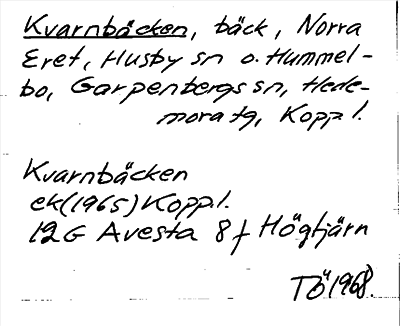 Kvarnbäcken, bäck, Norra
Eret, Husby sn o. Hummel-
bo, Garpenbergs sn, Hede-
mora tg, Koppl.
Kvarnbäcken
ek(1965)Koppl.
12G Avesta 8f Högtjärn
TÖ 1968.